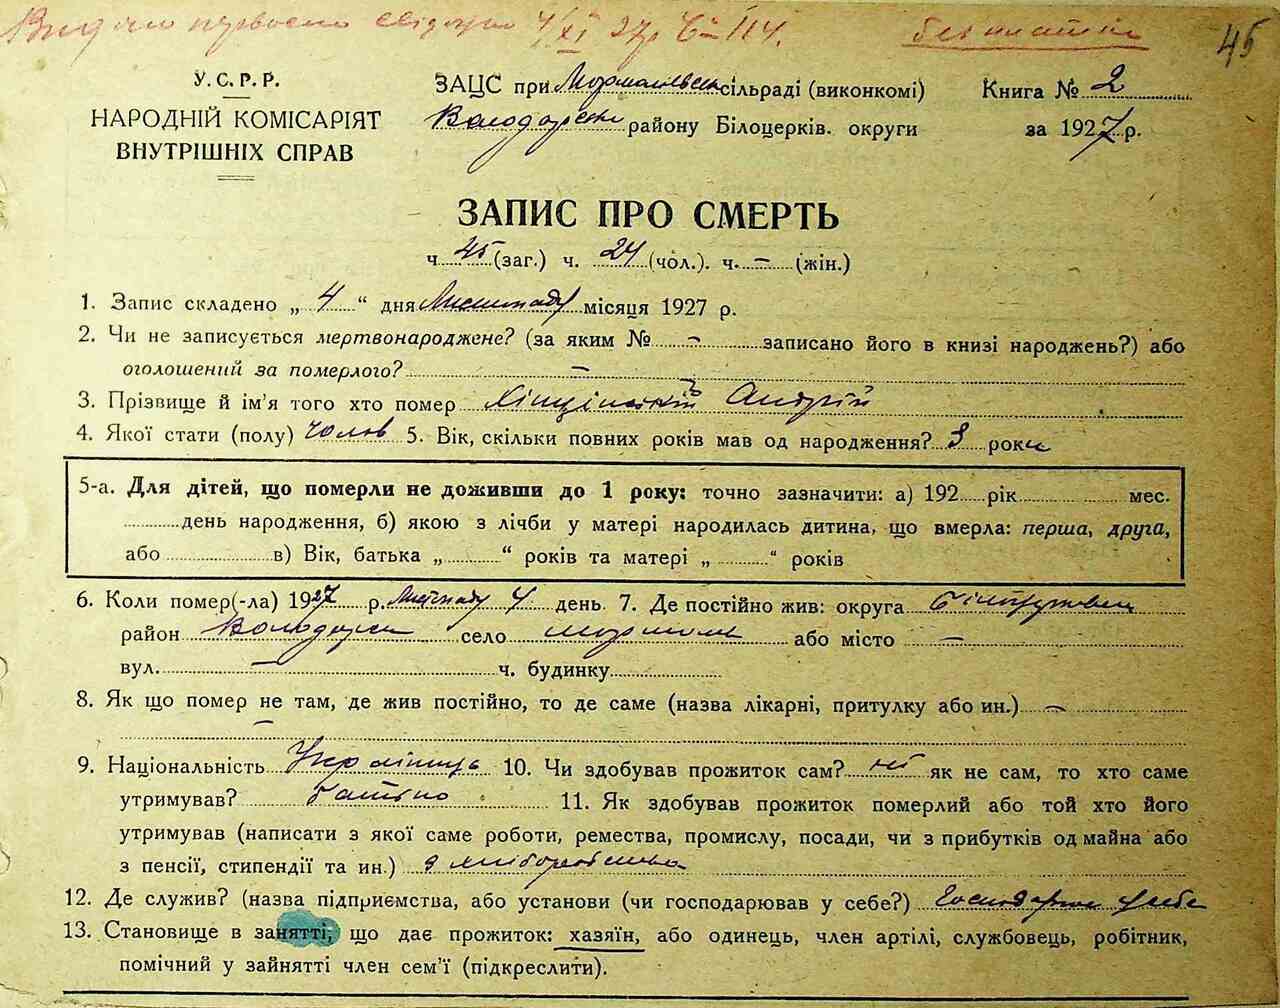 Видано первосно свідоцтво 4/XI 27р № 114. безплатно 45
У. С. Р. Р.
НАРОДНІЙ КОМІСАРІЯТ
ВНУТРІШНІХ СПРАВ
ЗАЦС при сільраді (виконкомі) Книга № 2
Володарськ району Білоцерків. округи за 1927 р.
ЗАПИС ПРО СМЕРТЬ
ч 45 (заг.) ч. 24 (чол.). ч. – (жін.)
1. Запис складено „ 4 “ дня Листопаду місяця 1927 р.
2. Чи не записується мертвонароджене? (за яким № – записано його в книзі народжень?) або
оголошений за померлого? –
3. Прізвище й ім'я того хто помер Андрій
4. Якої стати (полу) чолов 5. Вік, скільки повних років мав од народження? 3 роки
5-а. Для дітей, що померли не доживши до 1 року: точно зазначити: а) 192 рік мес.
день народження, б) якою з лічби у матері народилась дитина, що вмерла: перша, друга,
або в) Вік, батька „ “ років та матері „ “ років
6. Коли помер(-ла) 1927 р. Листопаду 4 день. 7. Де постійно жив: округа
район Володарськ село або місто –
вул. – ч. будинку
8. Як що помер не там, де жив постійно, то де саме (назва лікарні, притулку або ин.) –
–
9. Національність Українець 10. Чи здобував прожиток сам? ні як не сам, то хто саме
утримував? батько 11. Як здобував прожиток померлий або той хто його
утримував (написати з якої саме роботи, ремества, промислу, посади, чи з прибутків од майна або
з пенсії, стипендії та ин.) з хліборобства
12. Де служив? (назва підприємства, або установи (чи господарював у себе?) Господарив у себе
13. Становище в занятті, що дає прожиток: хазяїн, або одинець, член артілі, службовець, робітник,
помічний у зайнятті член сем'ї (підкреслити).